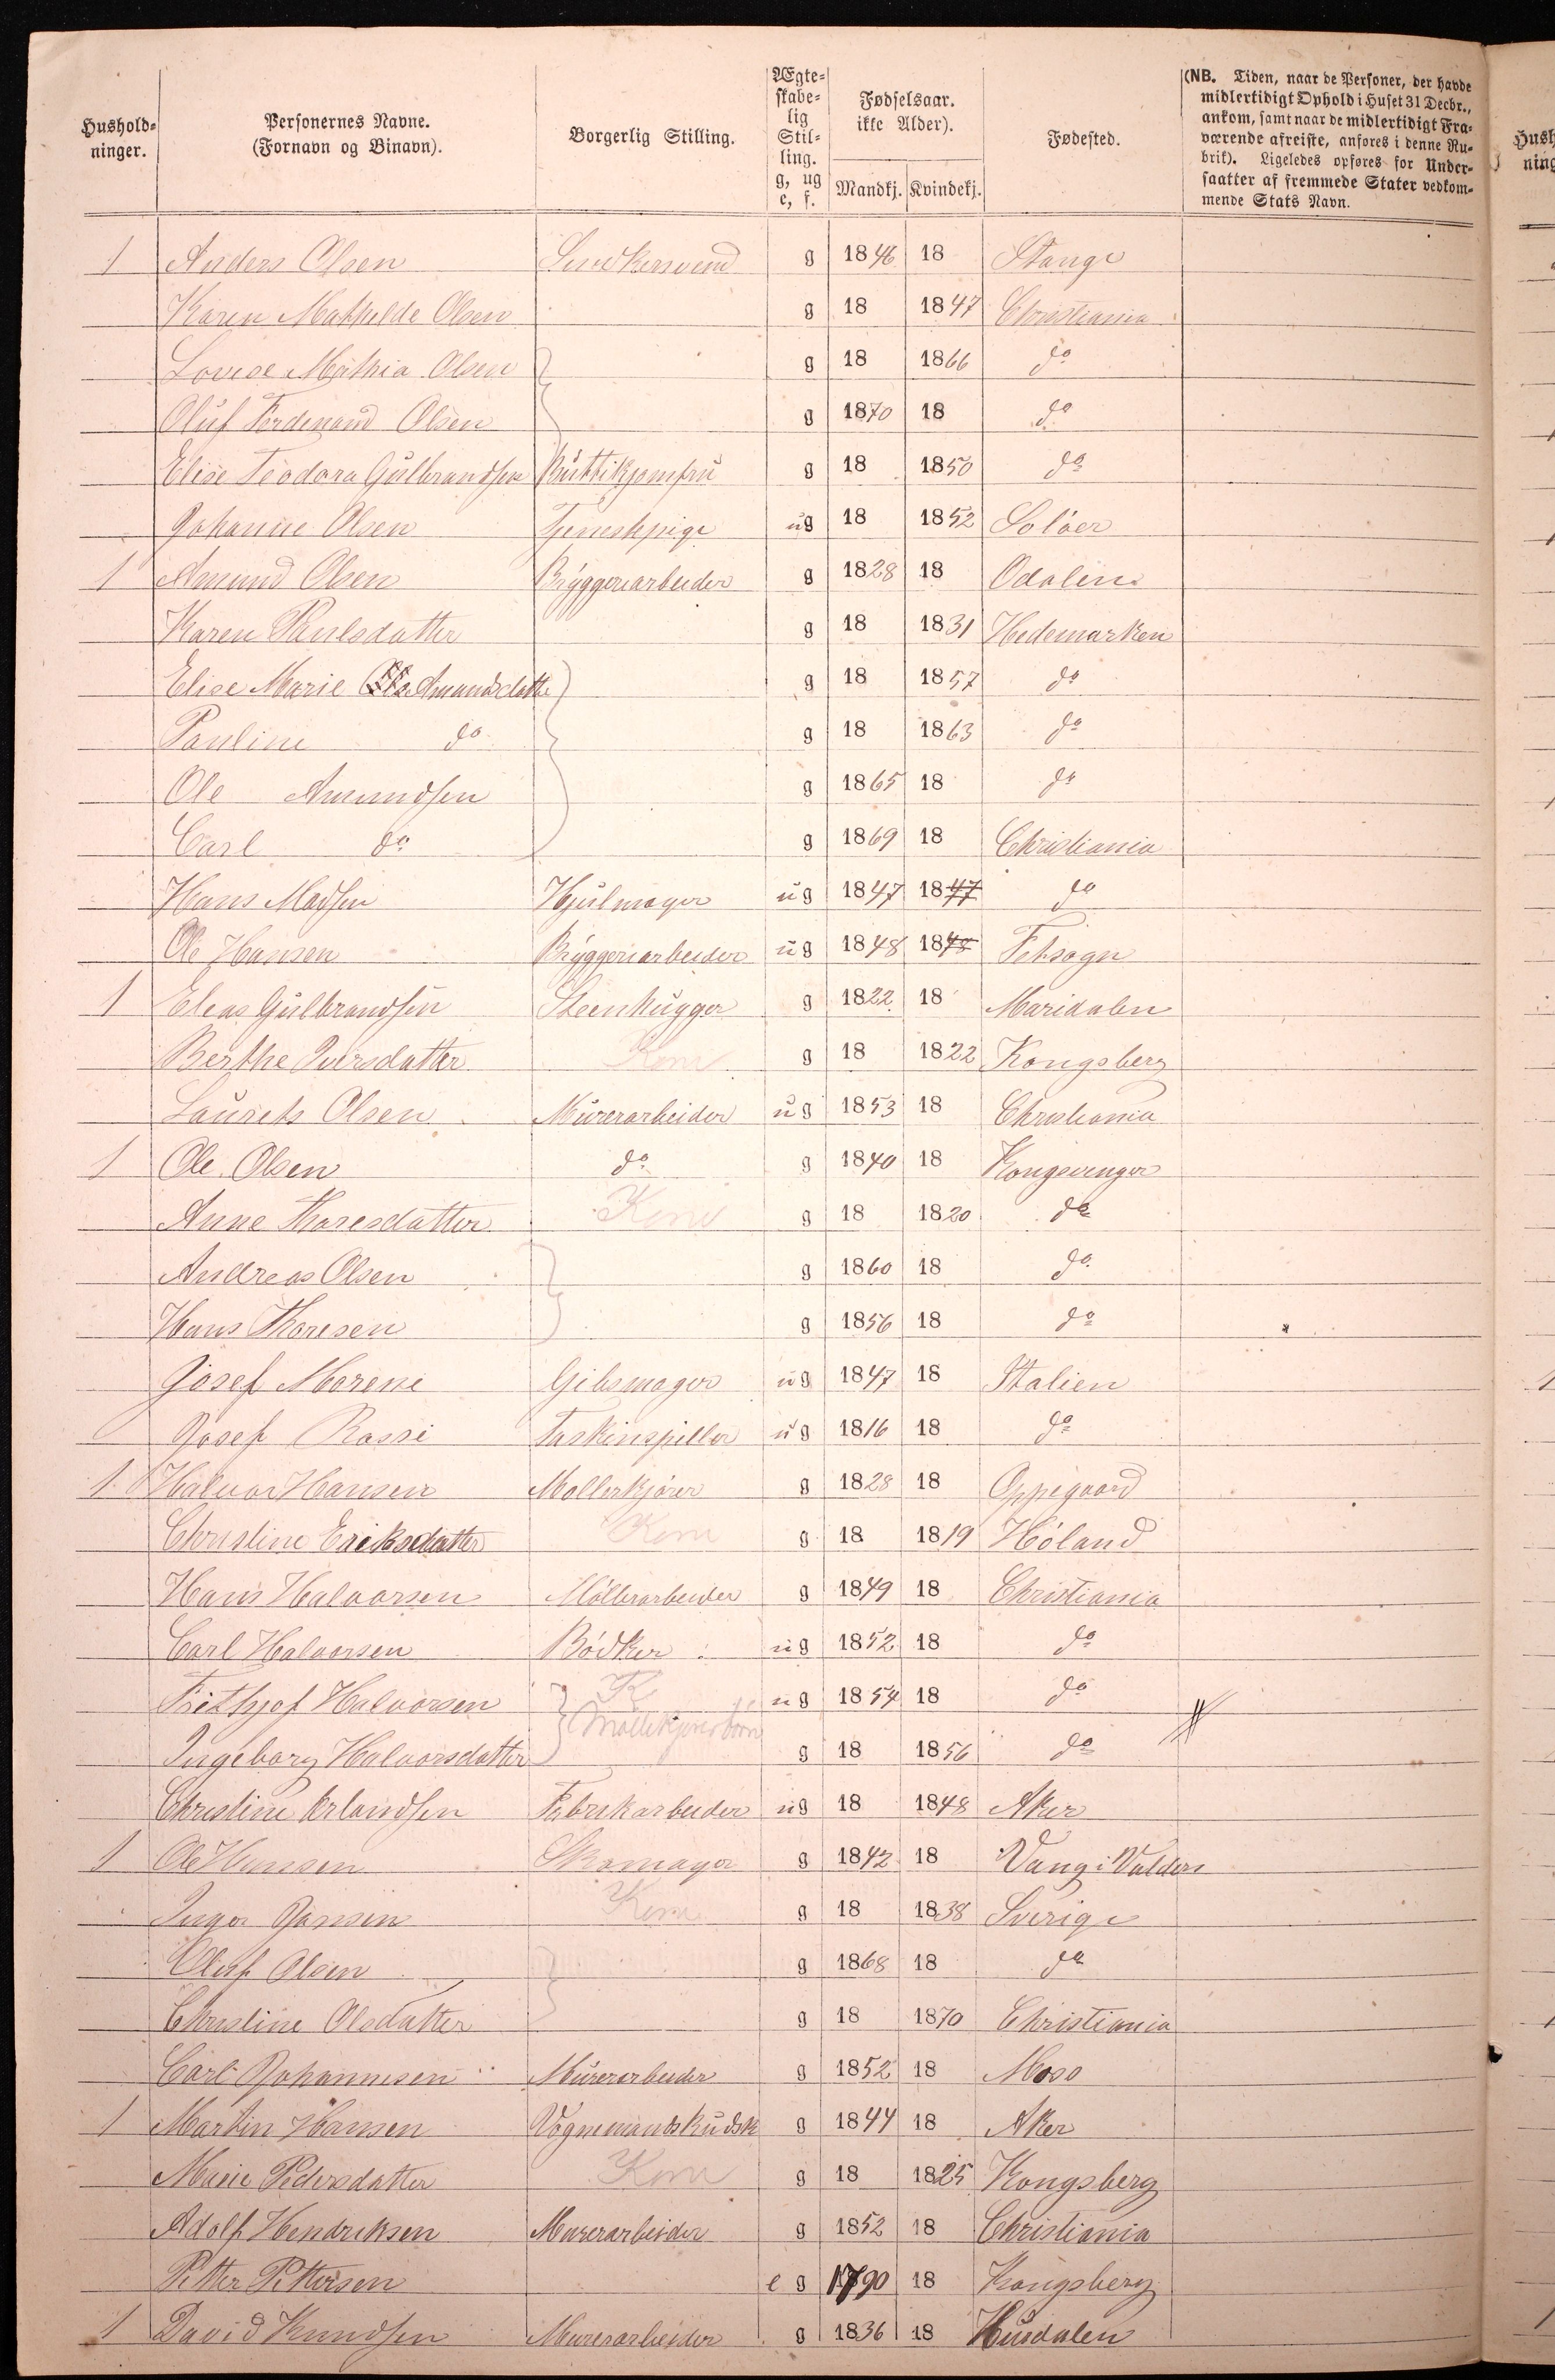 Hushold-
ninger.
Personernes Navne.
(Fornavn og Binavn).
Borgerlig Stilling.
Ægte-
skabe-
lig
Stil-
ling.
g, ug
e, f.
Fødselsaar.
ikke Alder).
Mandkj. Kvindekj.
Fødested.
(NB. Tiden, naar de Personer, der havde
midlertidigt Ophold i Huset 31 Decbr.,
ankom, samt naar de midlertidigt Fra-
værende afreiste, anføres i denne Ru-
brik). Ligeledes opføres for Under-
saatter af fremmede Stater vedkom-
mende Stats Navn.
1 Anders Olsen g 1846 18 Stange
Karen Mathilde Olsen g 18 1847 Christiania
Lovise Mathia Olsen g 18 1866 do
Oluf Ferdenand Olsen g 1870 18 do
Elise Teodora Gulbrandsen Buttikjomfru g 18 1850 do
Johanne Olsen Tjenestepige ug 18 1852 Soløer
1 Amund Olsen Bryggeriarbeider g 1828 18 Odalen
Karen Paulsdatter g 18 1831 Hedemarken
Elise Marie Amundsdatte g 18 1857 do
Pauline do g 18 1863 do
Ole Amundsen g 1865 18 do
Carl do g 1869 18 Christiania
Hans Madsen Hjulmager ug 1847 1847 do
Ole Hansen Bryggeriarbeider ug 1848 1848 Fetsogn
1 Eleas Gulbrandsen Steenhugger g 1822 18 Maridalen
Berthe Iversdatter Kone g 18 1822 Kongsberg
Laurets Olsen Murerarbeider ug 1853 18 Christiania
1 Ole Olsen do g 1840 18 Kongsvinger
Anne Thoresdatter Kone g 18 1820 do
Andreas Olsen g 1860 18 do
Hans Thoresen g 1856 18 do
Josef Morene Gibsmager ug 1847 18 Italien
Josef Rossi Taskinspiller ug 1816 18 do
1 Halvor Hansen Møllerkjører g 1828 18 Oppegaard
Christine Eriksdatter Kone g 18 1819 Høland
Hans Halvorsen Møllerarbeider g 1849 18 Christiania
Carl Halvorsen Bødker ug 1852 18 do
Frithjof Halvorsen K ug 1854 18 do
Ingeborg Halvorsdatter Møllekjørerbørn g 18 1856 do
Christine Erlandsen Fabrikarbeider ug 18 1848 Aker
1 Ole Hansen Skomager g 1842 18 Vang i Valders
Inger Jansen Kone g 18 1838 Sverige
Oluf Olsen g 1868 18 do
Christine Olsdatter g 18 1870 Christiania
Carl Johannesen Murerarbeider g 1852 18 Moss
1 Martin Hansen Vognemandskudsk g 1844 18 Aker
Marie Pedersdatter Kone g 18 1825 Kongsberg
Adolf Hendriksen Murerarbeider g 1852 18 Christiania
Petter Pettersen e g 1790 18 Kongsberg
1 David Knudsen Murerarbeider g 1836 18 Hurdalen